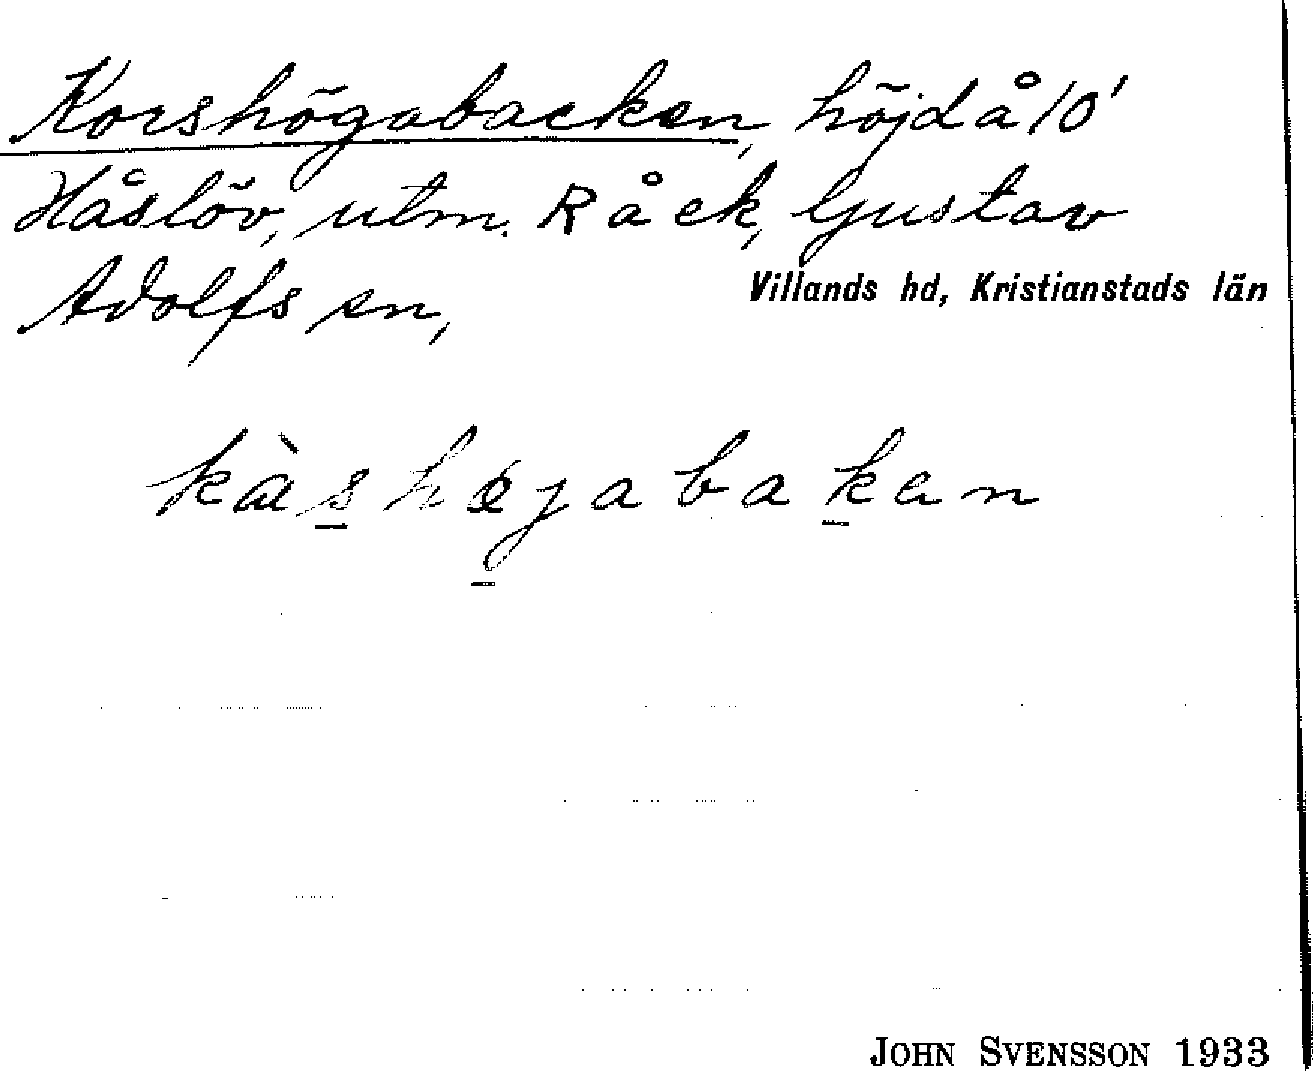 Korshögabacken, höjd å 10'
Håslöv, utm. Råck, Gustav
Adolfs sn,
Villands hd, Kristianstads län
kàshøjabakan
JOHN SVENSSON 1933